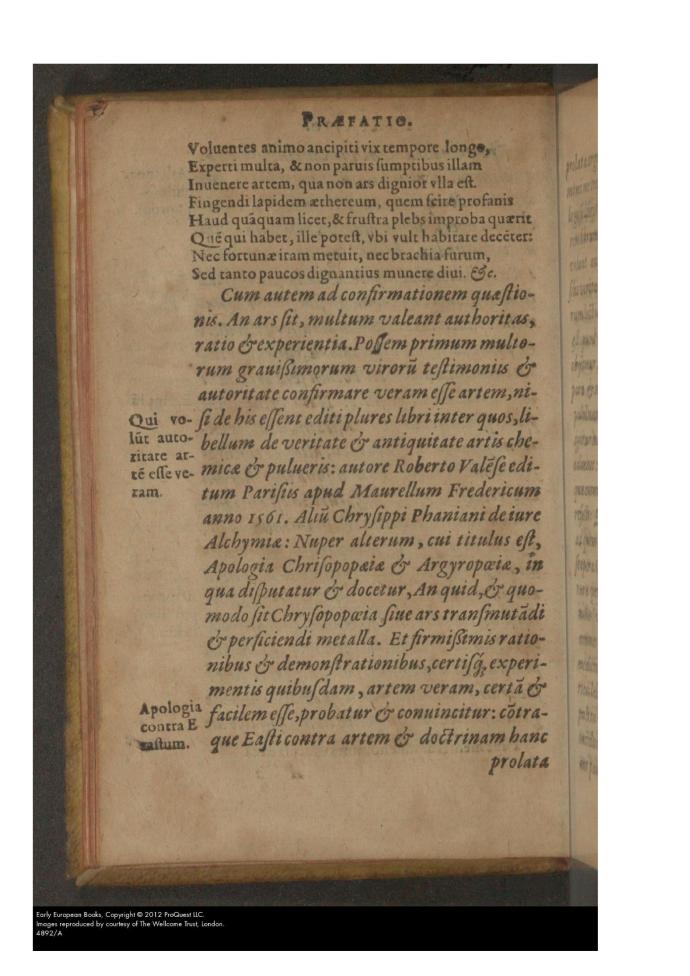 PRÆFATIO.
Voluentes animo ancipiti vix tempore longo,
Experti multa, & non paruis ſumptibus illam
Inuenere artem, qua non ars dignior vlla eſt.
Fingendi lapidem æthereum, quem ſcire profanis
Haud quãquam licet, & fruſtra plebs improba quærit
Quẽ qui habet, ille poteſt, vbi vult habitare decẽter:
Nec fortunæ iram metuit, nec brachia furum,
Sed tanto paucos dignantius munere diui. &c.
Cum autem ad confirmationem quæſtio-
nis. An ars ſit, multum valeant authoritas,
ratio & experientia. Poſſem primum multo-
rum grauiſſimorum virorũ teſtimoniis &
autoritate confirmare veram eſſe artem, ni-
ſi de his eſſent editi plures libri inter quos, li-
bellum de veritate & antiquitate artis che-
micæ & pulueris: autore Roberto Valẽſe edi-
tum Pariſiis apud Maurellum Fredericum
anno 1561. Aliũ Chryſippi Phaniani de iure
Alchymiæ: Nuper alterum, cui titulus eſt,
Apologia Chriſopopæiæ & Argyropœiæ, in
qua diſputatur & docetur, An quid, & quo-
modo ſit Chryſopopœia ſiue ars tranſmutãdi
& perficiendi metalla. Et firmiſſimis ratio-
nibus & demonſtrationibus, certiſq́, experi-
mentis quibuſdam, artem veram, certã &
facilem eſſe, probatur & conuincitur: cõtra-
que Eaſti contra artem & doctrinam hanc
prolata
Qui vo-
lũt auto-
ritate ar-
tẽ eſſe ve-
ram.
Apologia
contra E
raſtum.
Early European Books, Copyright © 2012 ProQuest LLC.
Images reproduced by courtesy of The Wellcome Trust, London.
4892/A